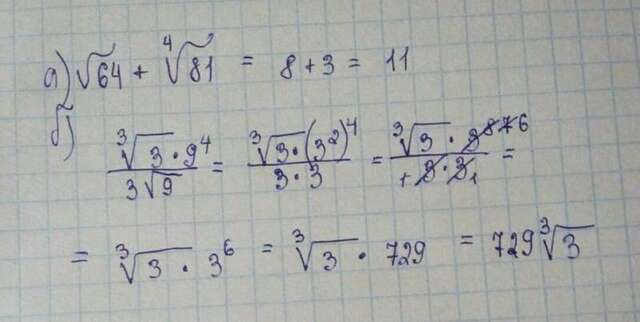 а) √64 + ⁴√81 = 8 + 3 = 11
б) (³√3 · 9⁴)/(3√9) = (³√3 · (3²)⁴)/(3 · 3) = (³√3 · 3⁸ ⁷ ⁶)/(1 3 · 3 1) =
= ³√3 · 3⁶ = ³√3 · 729 = 729 ³√3